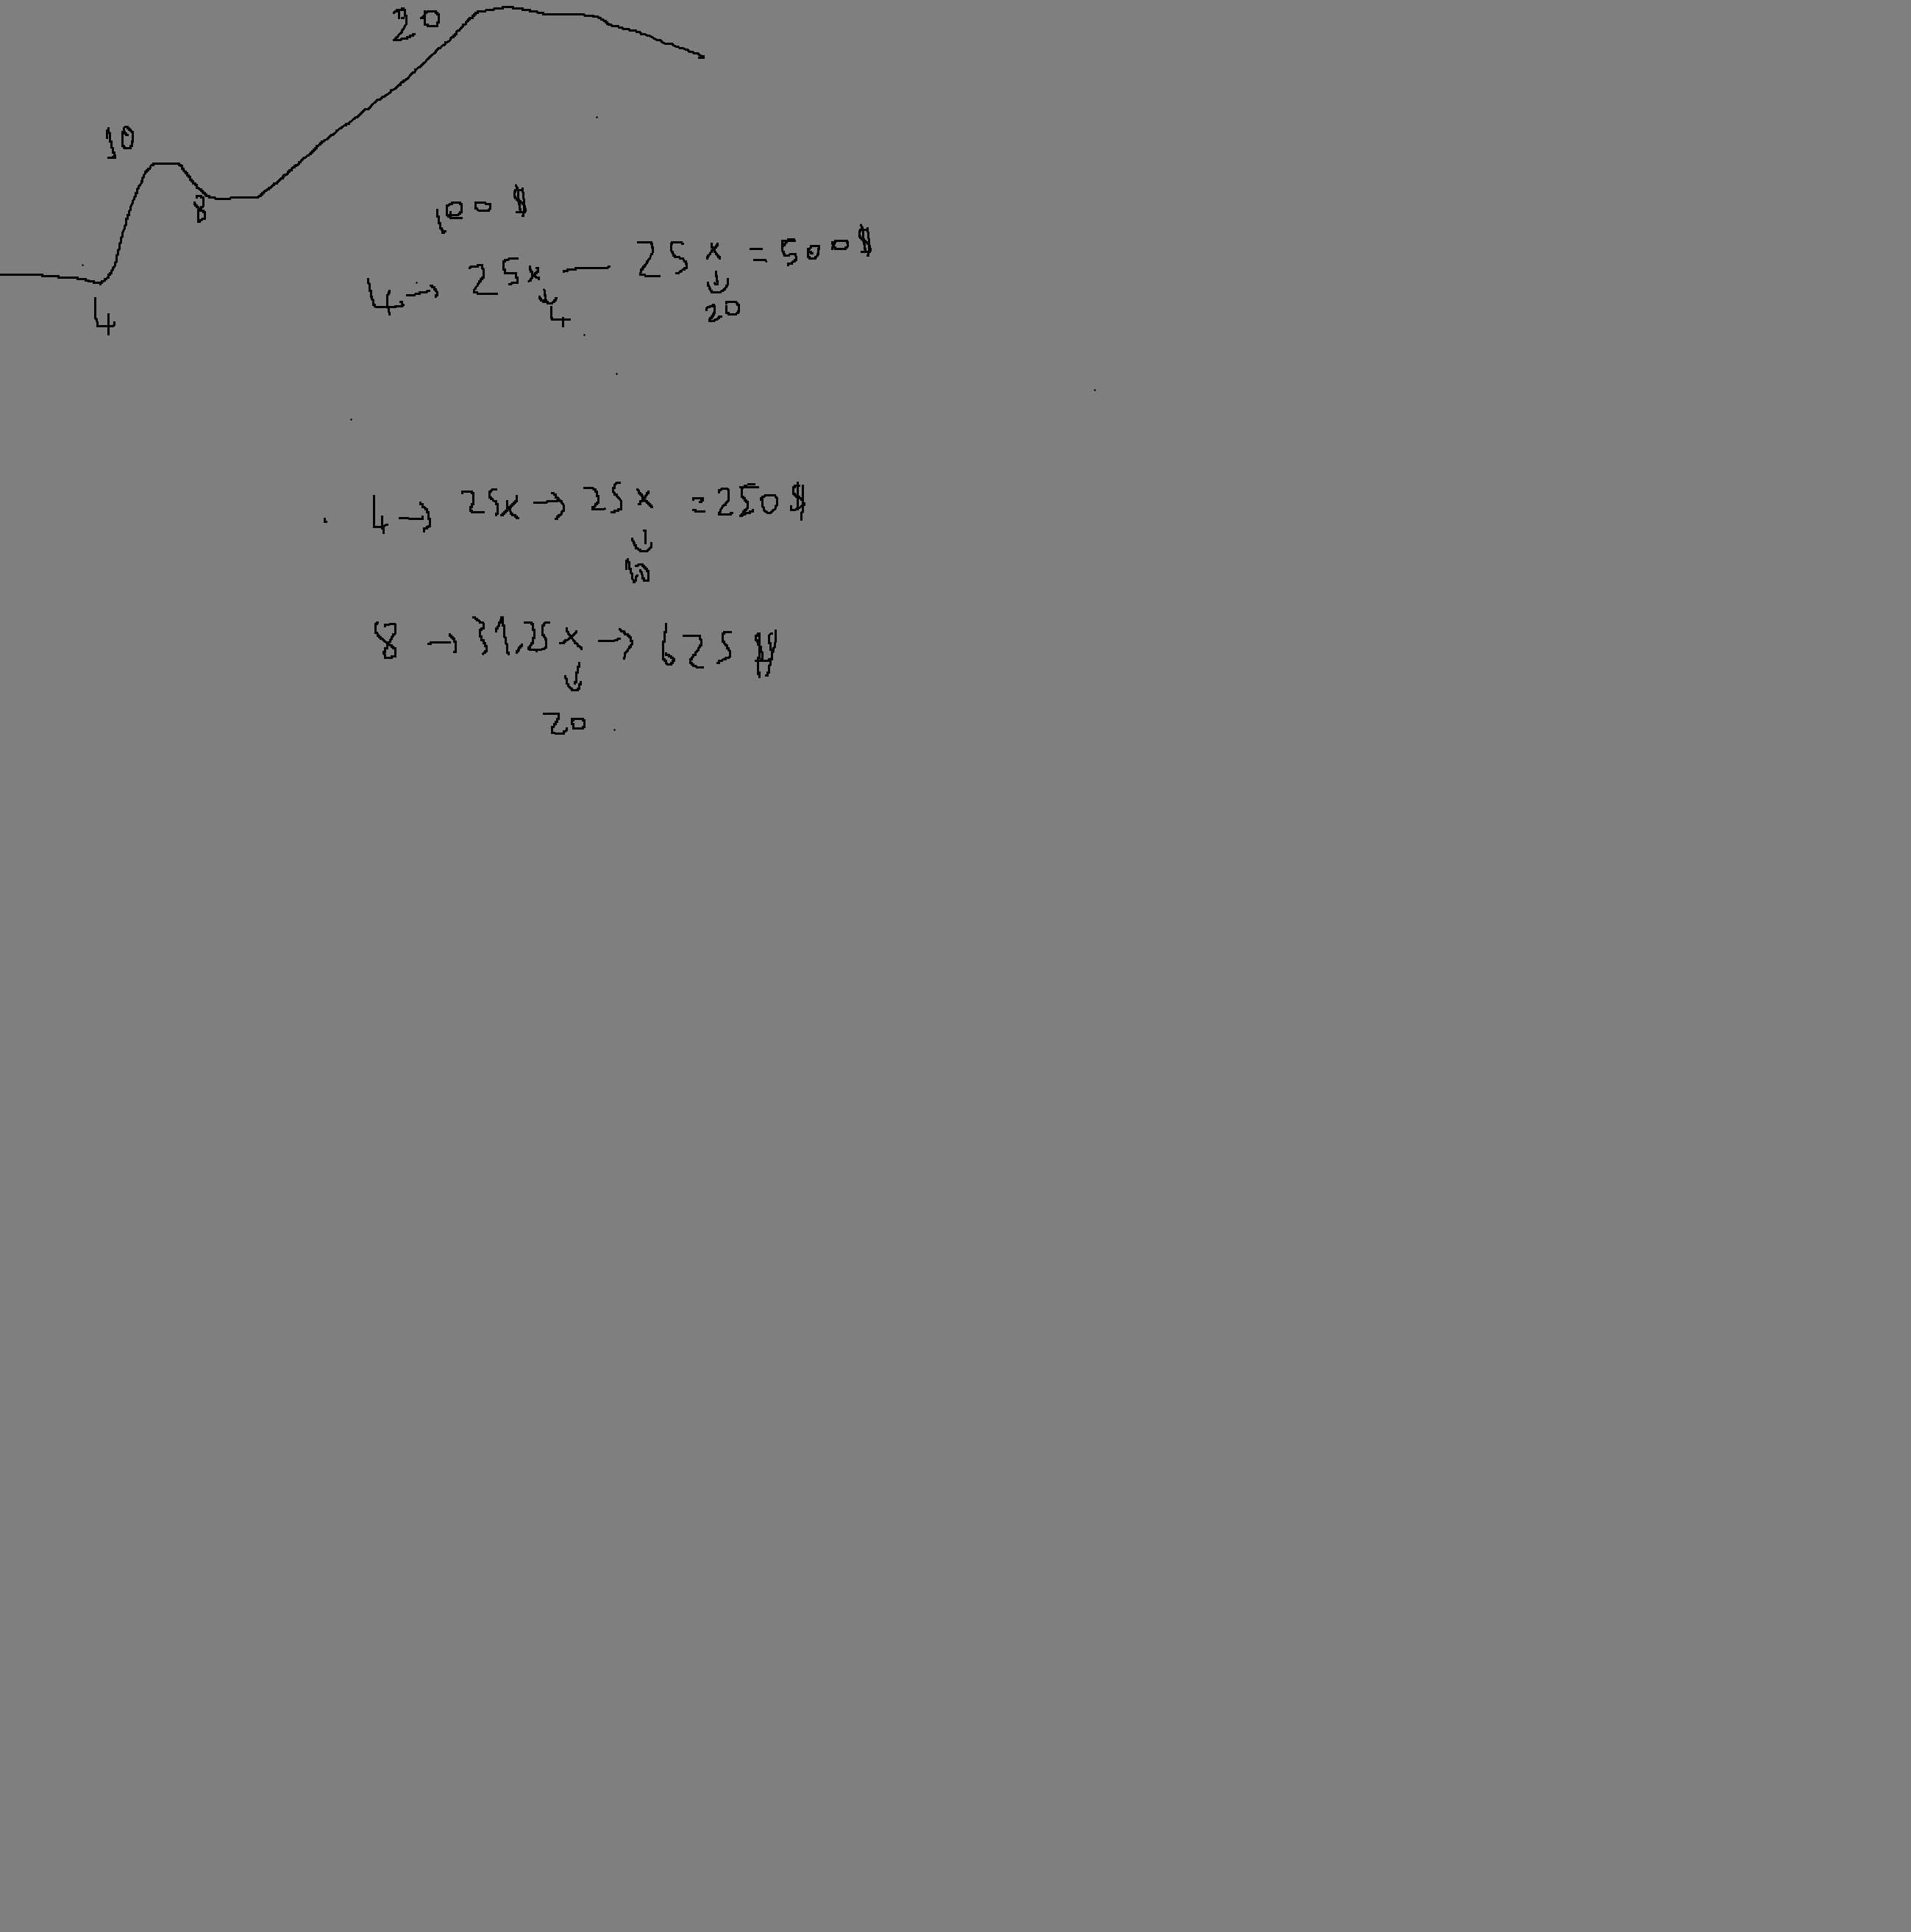 20
10
8
4
100 $
4 → 25x — 25x = 500 $
4
20
4 → 25x → 25x = 250 $
10
8 → 31,25x → 625 $
20